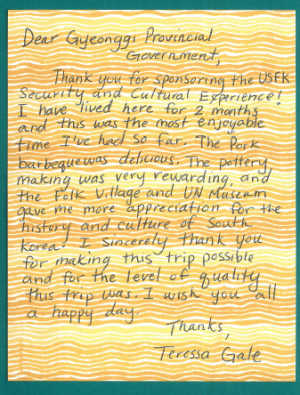 Dear Gyeonggi Provincial
Government,
Thank you for sponsoring the USFK
Security and Cultural Experience!
I have lived here for 2 months
and this was the most enjoyable
time I've had so far. The Pork
barbeque was delicious. The pottery
making was very rewarding, and
the Folk Village and UN Museum
gave me more appreciation for the
history and culture of South
Korea. I Sincerely thank you
for making this trip possible
and for the level of quality
this trip was. I wish you all
a happy day.
Thanks,
Teressa Gale